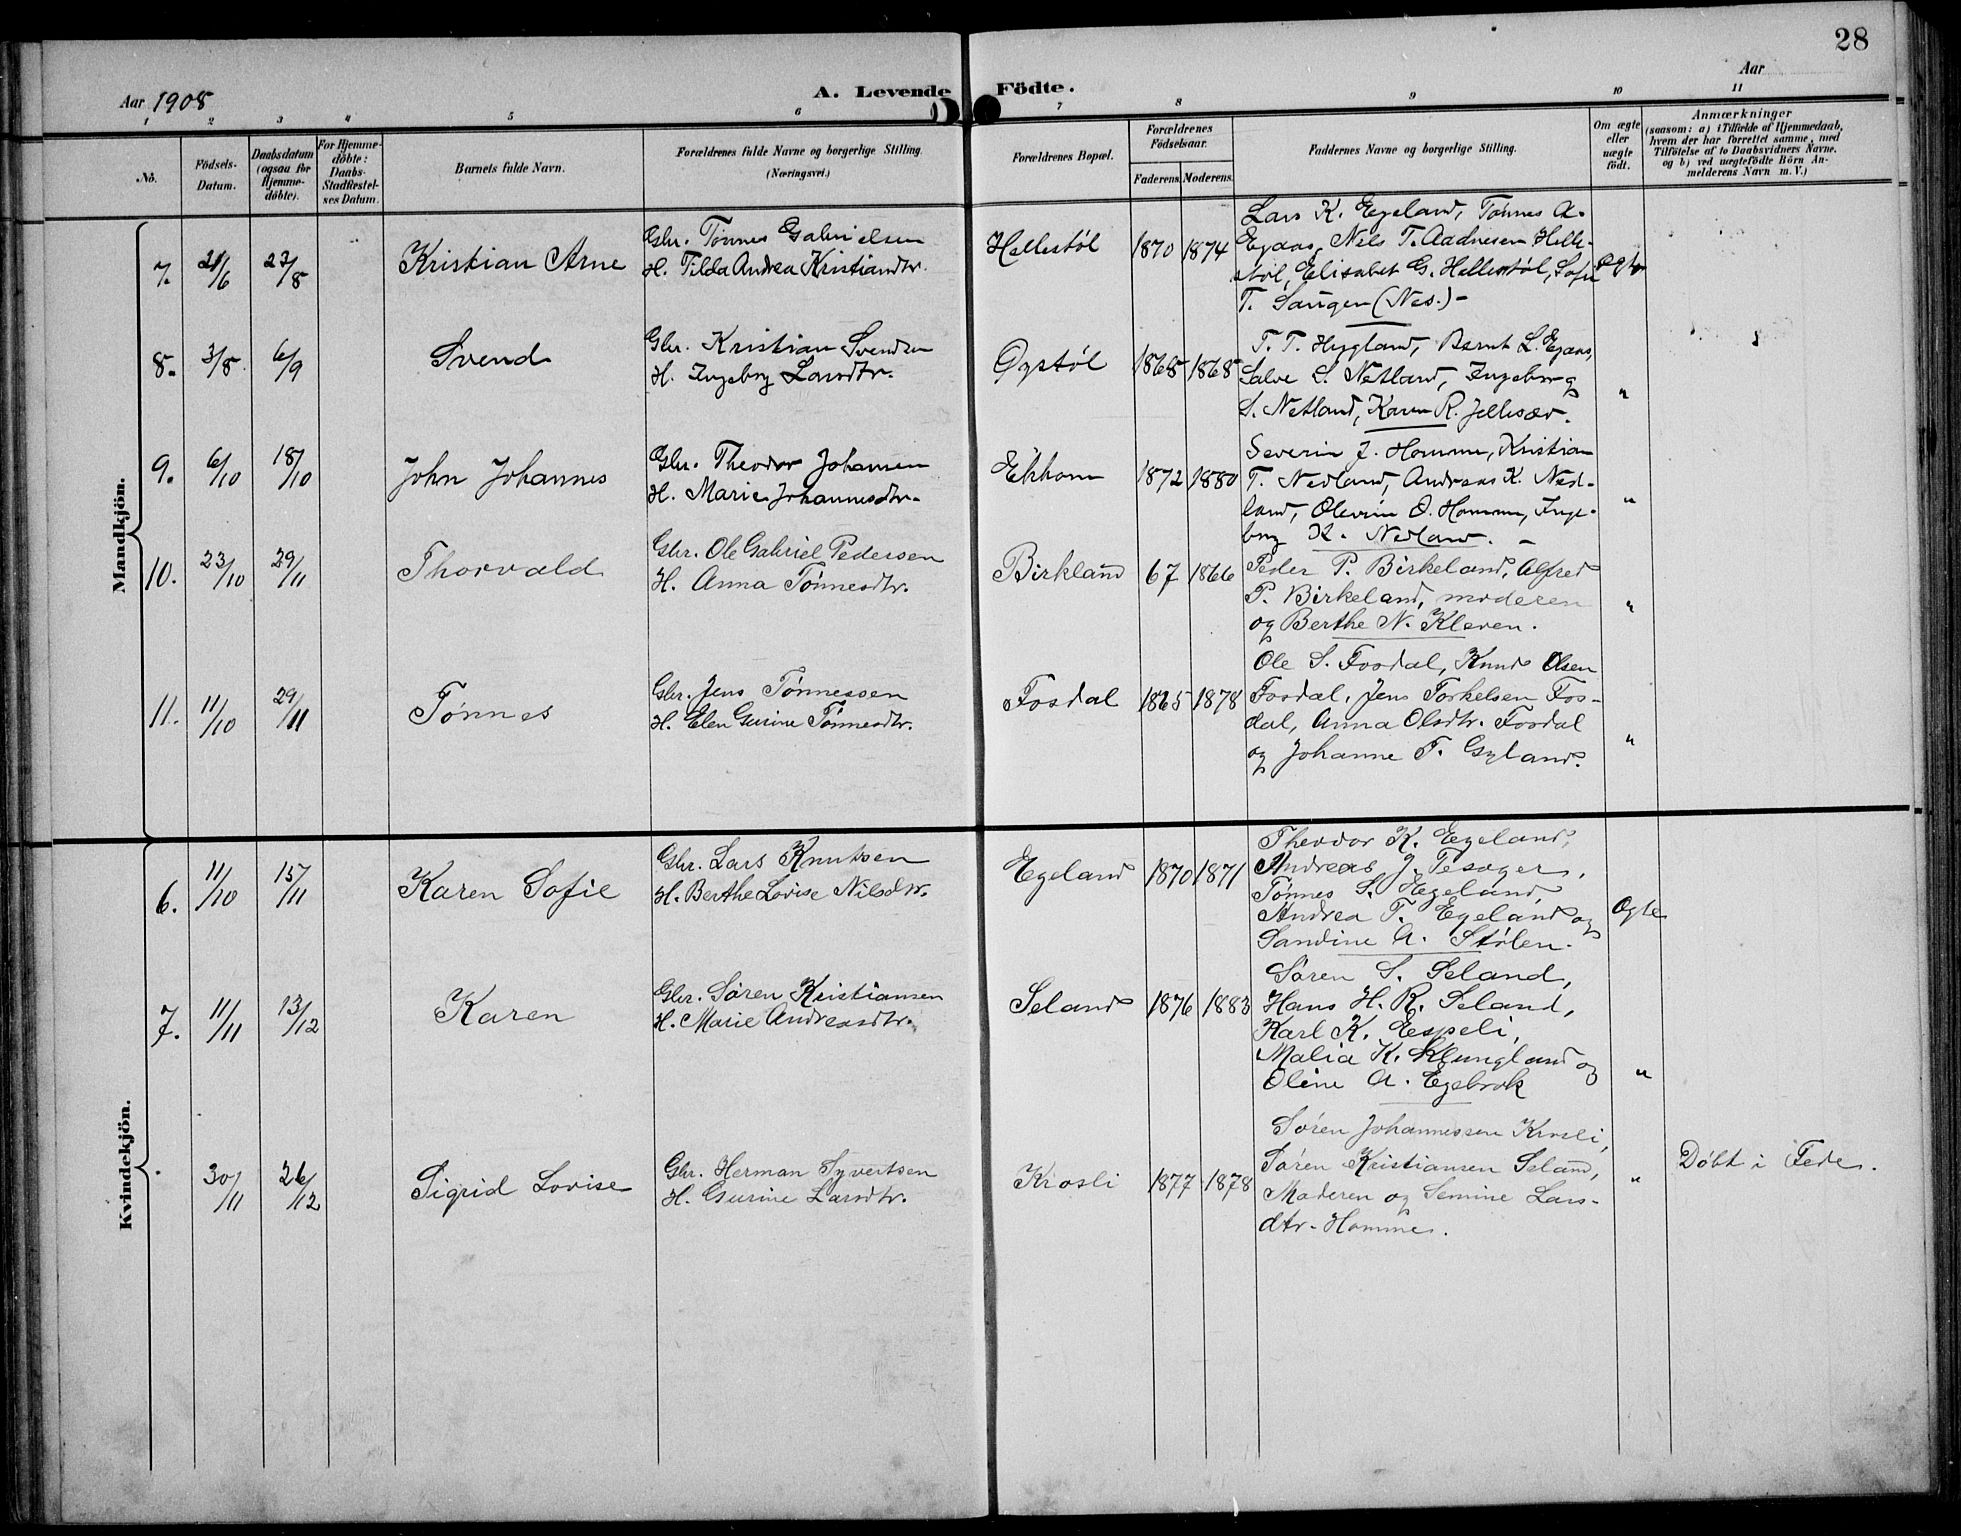 28
Aar 1908
A. Levende Födte.
Aar
1 2 3 4 5 6 7 8 9 10 11
No.
Födsels-
Datum.
Daabsdatum
(ogsaa for
Hjemme-
döbte).
For Hjemme-
döbte:
Daabs-
Stadfæstel-
ses Datum.
Barnets fulde Navn.
Forældrenes fulde Navne og borgerlige Stilling.
(Næringsvei.)
Forældrenes Bopæl.
Forældrenes
Födselsaar.
Faderens. Moderens.
Faddernes Navne og borgerlige Stilling.
Om ægte
eller
uægte
födt.
Anmærkninger
(saasom: a) i Tilfælde af Hjemmedaab,
hvem der har forrettet samme, med
Tilföielse af to Daabsvidners Navne,
og b) ved uægtefödte Börn An-
melderens Navn m. V.)
Mandkjön.
7. 21/6 23/8 Kristian Arne
Gbr. Tönnes Gabrielsen
H. Tilda Andrea Kristiandtr.
Hellestöl 1870 1874
Lars K. Egeland, Tönnes A.
Egaas, Nils T. Aadnesen Helle-
støl, Elisabet G. Hellestöl, Sofie
T. Saugen (Nes.) -
Egte
8. 3/8 6/9 Svend
Gbr. Kristian Svendsen
H. Ingeborg Larsdtr.
Öystöl 1868 1868
T. T. Hygland, Bernt L. Egaas,
Salve S. Netland, Ingeborg
S. Netland, Karen R.
"
9. 6/10 18/10 John Johannes
Gbr. Theodor Johansen
H. Marie Johannesdtr.
Eikhom 1872 1880
Severin J. Homme, Kristian
T. Nedland, Andreas K. Ned-
land, Olevine O. Homme, Inge-
borg K. Nedland. -
"
10. 23/10 29/11 Thorvald
Gbr. Ole Gabriel Pedersen
H. Anna Tönnesdtr.
Birkland 67 1866
Peder P. Birkeland, Alfred
P. Birkeland, moderen
og Berthe N. Kleven.
"
11. 11/10 29/11 Tönnes
Gbr. Jens Tönnessen
H. Elen Gurine Tönnesdtr.
Fosdal 1865 1878
Ole S. Fosdal, Knud Olsen
Fosdal, Jens Torkelsen Fos-
dal, Anna Olsdtr. Fosdal
og Johanne T. Gyland.
"
Kvindekjön.
6. 11/10 15/11 Karen Sofie
Gbr. Lars Knutsen
H. Berthe Lovise Nilsdtr.
Egeland 1870 1871
Theodor K. Egeland,
Andreas J. Tesager,
Tönnes S. Egeland,
Andrea T. Egeland og
Sandine A. Stölen.
Egte
7. 11/11 13/12 Karen
Gbr. Sören Kristiansen
H. Marie Andreasdtr.
Seland 1876 1883
Sören S. Seland,
Hans H. R. Seland,
Karl K. Espeli,
Malia K. Klungland og
Oline A. Egebrok
"
30/11 26/12 Sigrid Lovise
Gbr. Herman Syvertsen
H. Gurine Larsdtr.
Krosli 1877 1878
Sören Johannessen Krosli,
Sören Kristiansen Seland,
Moderen og Semine Lars-
dtr. Homme.
"
Döbt i Fede.